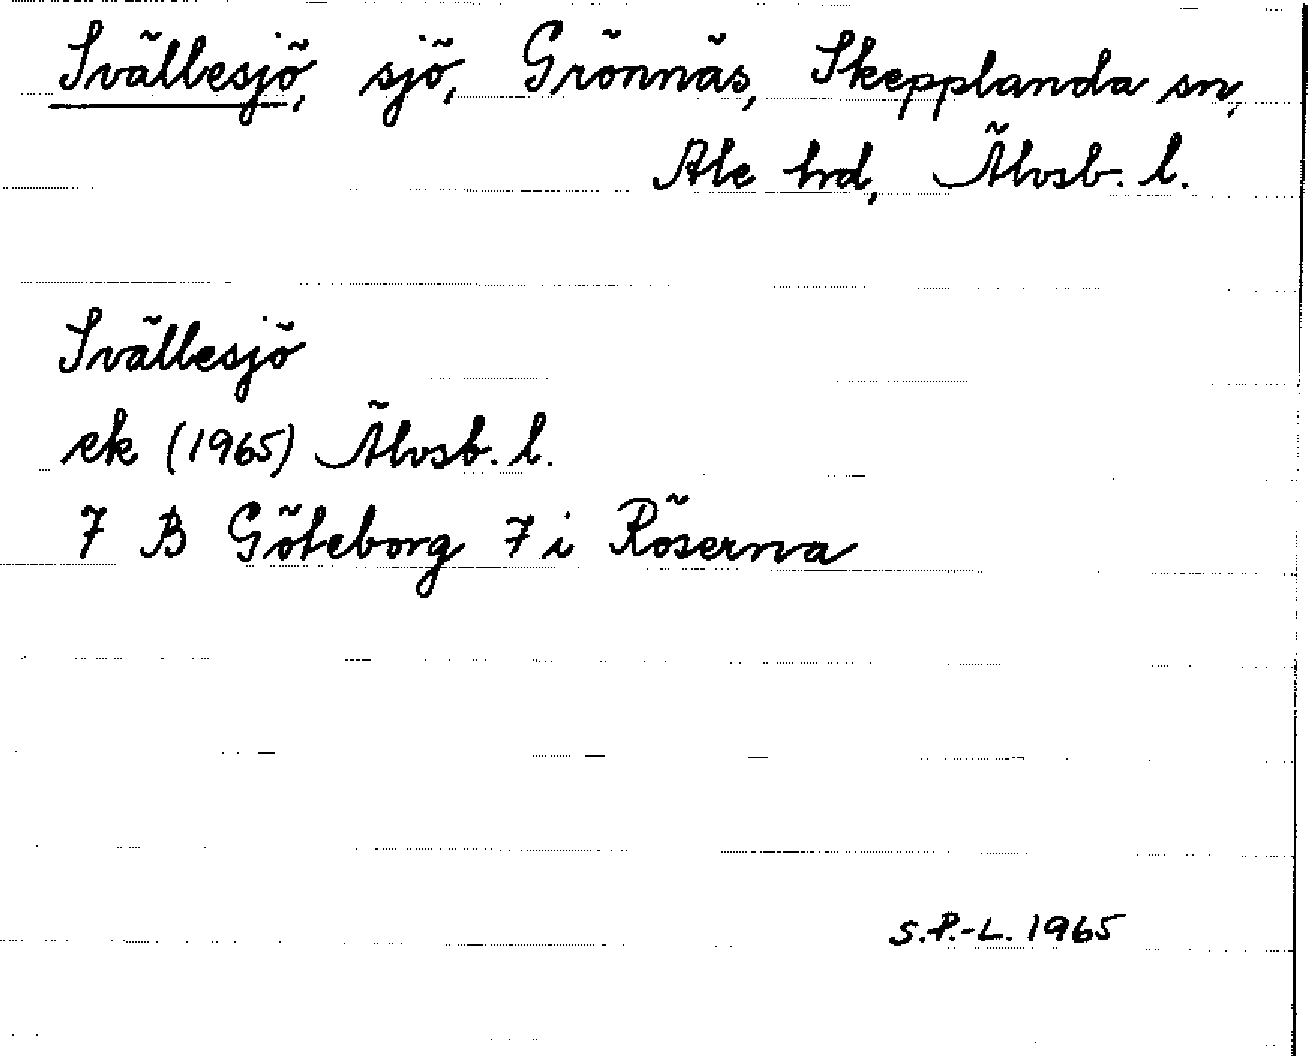 Svällesjö, sjö, Grönnäs, Skepplanda sn,
Ale hrd, Älvsb. l.
Svällesjö
ek (1965) Älvsb. l.
7 B Göteborg 7 i Röserna
S.P.-L. 1965